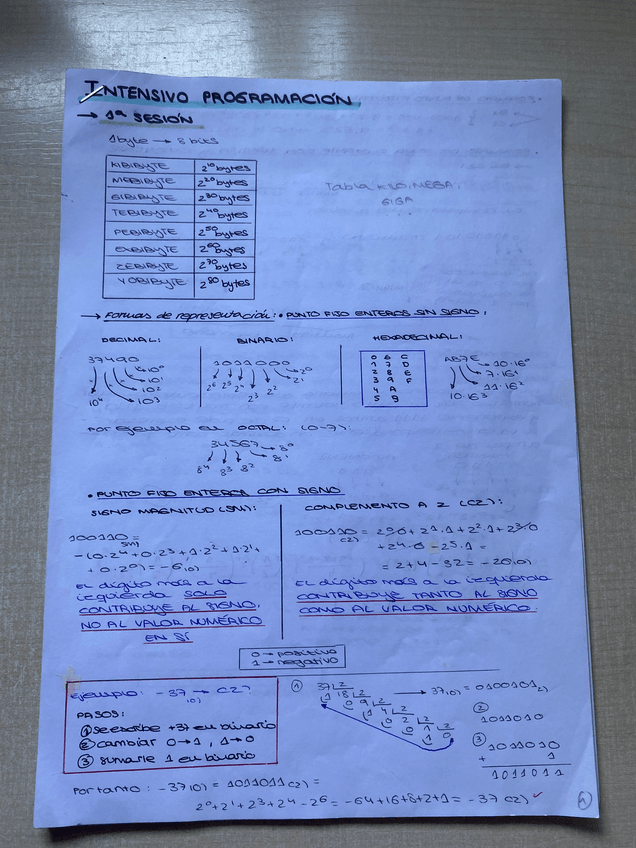 INTENSIVO PROGRAMACIÓN
→ 1ª SESIÓN
1 byte → 8 bits
KIBIBYTE 2^10 bytes
MEBIBYTE 2^20 bytes
GIBIBYTE 2^30 bytes
TEBIBYTE 2^40 bytes
PEBIBYTE 2^50 bytes
EXBIBYTE 2^60 bytes
ZEBIBYTE 2^70 bytes
YOBIBYTE 2^80 bytes
Tabla KILO, MEGA,
GIGA
→ Formas de representación: • PUNTO FIJO ENTEROS SIN SIGNO:
DECIMAL:
37490
10^0
10^1
10^2
10^4 10^3
BINARIO:
1011000
2^0
2^6 2^5 2^4 2^1
2^3 2^2
HEXADECIMAL:
0 6 C
1 7 D
2 8 E
3 9 F
4 A
5 B
AB7E
10·16^0
7·16^1
11·16^2
10·16^3
Por ejemplo en OCTAL: (0-7):
34567 → 8^0
8^4 8^3 8^2 8^1
• PUNTO FIJO ENTEROS CON SIGNO
SIGNO MAGNITUD (SM):
100110 SM) =
-(0·2^4 + 0·2^3 + 1·2^2 + 1·2^1 +
+ 0·2^0) = -6 10)
EL dígito más a la
izquierda SOLO
CONTRIBUYE AL SIGNO,
NO AL VALOR NUMÉRICO
EN SÍ
COMPLEMENTO A 2 (C2):
100110 C2) = 2^0·0 + 2^1·1 + 2^2·1 + 2^3·0
+2^4·0 - 2^5·1 =
= 2+4-32 = -26 10)
EL dígito más a la izquierda
CONTRIBUYE TANTO AL SIGNO
COMO AL VALOR NUMÉRICO.
0 → positivo
1 → negativo
Ejemplo: -37 10) → C2?
PASOS:
① se escribe +37 en binario
② cambiar 0→1, 1→0
③ sumarle 1 en binario
① 37 2
1 18 2
0 9 2
1 4 2
0 2 2
0 1 2
1 0
→ 37 10) = 0100101 2)
②
1011010
③ 1011010
+ 1
1011011
Por tanto: -37 10) = 1011011 C2) =
2^0+2^1+2^3+2^4-2^6 = -64+16+8+2+1 = -37 C2) ✓